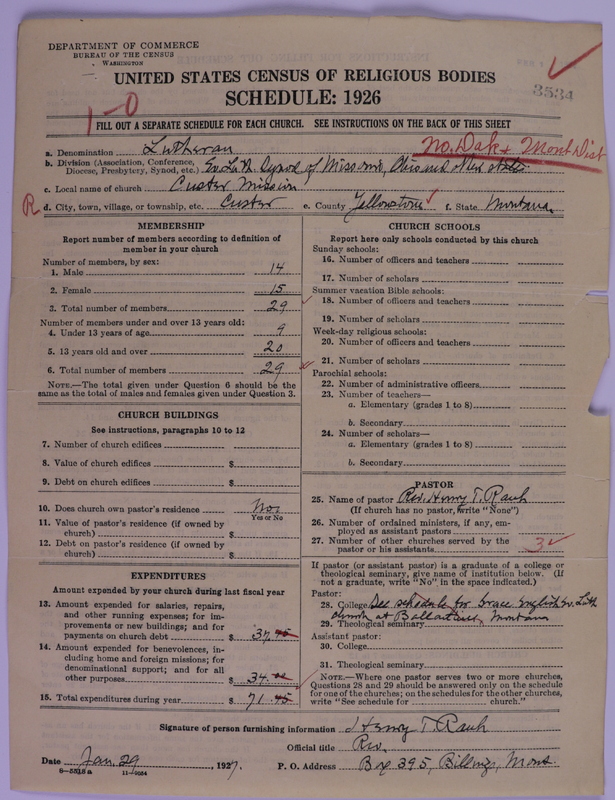 DEPARTMENT OF COMMERCE
BUREAU OF THE CENSUS
WASHINGTON
UNITED STATES CENSUS OF RELIGIOUS BODIES
SCHEDULE: 1926
3534
1-0
FILL OUT A SEPARATE SCHEDULE FOR EACH CHURCH. SEE INSTRUCTIONS ON THE BACK OF THIS SHEET
No. Dak & Mont Dist
a. Denomination Lutheran
b. Division (Association, Conference, Diocese, Presbytery, Synod, etc.) Ev. Luth. Synod of Missouri, Ohio and other states
c. Local name of church Custer Mission
R d. City, town, village, or township, etc. Custer e. County Yellowstone f. State Montana
MEMBERSHIP
Report number of members according to definition of
member in your church
Number of members, by sex:
1. Male 14
2. Female 15
3. Total number of members 29
Number of members under and over 13 years old:
4. Under 13 years of age 9
5. 13 years old and over 20
6. Total number of members 29
NOTE.—The total given under Question 6 should be the
same as the total of males and females given under Question 3.
CHURCH BUILDINGS
See instructions, paragraphs 10 to 12
7. Number of church edifices
8. Value of church edifices $
9. Debt on church edifices $
10. Does church own pastor's residence No.
Yes or No
11. Value of pastor's residence (if owned by
church) $
12. Debt on pastor's residence (if owned by
church) $
EXPENDITURES
Amount expended by your church during last fiscal year
13. Amount expended for salaries, repairs,
and other running expenses; for im-
provements or new buildings; and for
payments on church debt $ 37.45
14. Amount expended for benevolences, in-
cluding home and foreign missions; for
denominational support; and for all
other purposes $ 34.00
15. Total expenditures during year $ 71.45
CHURCH SCHOOLS
Report here only schools conducted by this church
Sunday schools:
16. Number of officers and teachers
17. Number of scholars
Summer vacation Bible schools:
18. Number of officers and teachers
19. Number of scholars
Week-day religious schools:
20. Number of officers and teachers
21. Number of scholars
Parochial schools:
22. Number of administrative officers
23. Number of teachers—
a. Elementary (grades 1 to 8)
b. Secondary
24. Number of scholars—
a. Elementary (grades 1 to 8)
b. Secondary
PASTOR
25. Name of pastor Rev. Henry T. Rauh
(If church has no pastor, write "None")
26. Number of ordained ministers, if any, em-
ployed as assistant pastors
27. Number of other churches served by the
pastor or his assistants 3
If pastor (or assistant pastor) is a graduate of a college or
theological seminary, give name of institution below. (If
not a graduate, write "No" in the space indicated.)
Pastor:
28. College See schedule for Grace English Ev. Luth
church at Ballantine, Montana
29. Theological seminary
Assistant pastor:
30. College
31. Theological seminary
NOTE.—Where one pastor serves two or more churches,
Questions 28 and 29 should be answered only on the schedule
for one of the churches; on the schedules for the other churches,
write "See schedule for church."
Signature of person furnishing information Henry T. Rauh
Official title Rev.
Date Jan. 29, 1927. P. O. Address Box 395, Billings, Mont.
8-5518a 11-9034